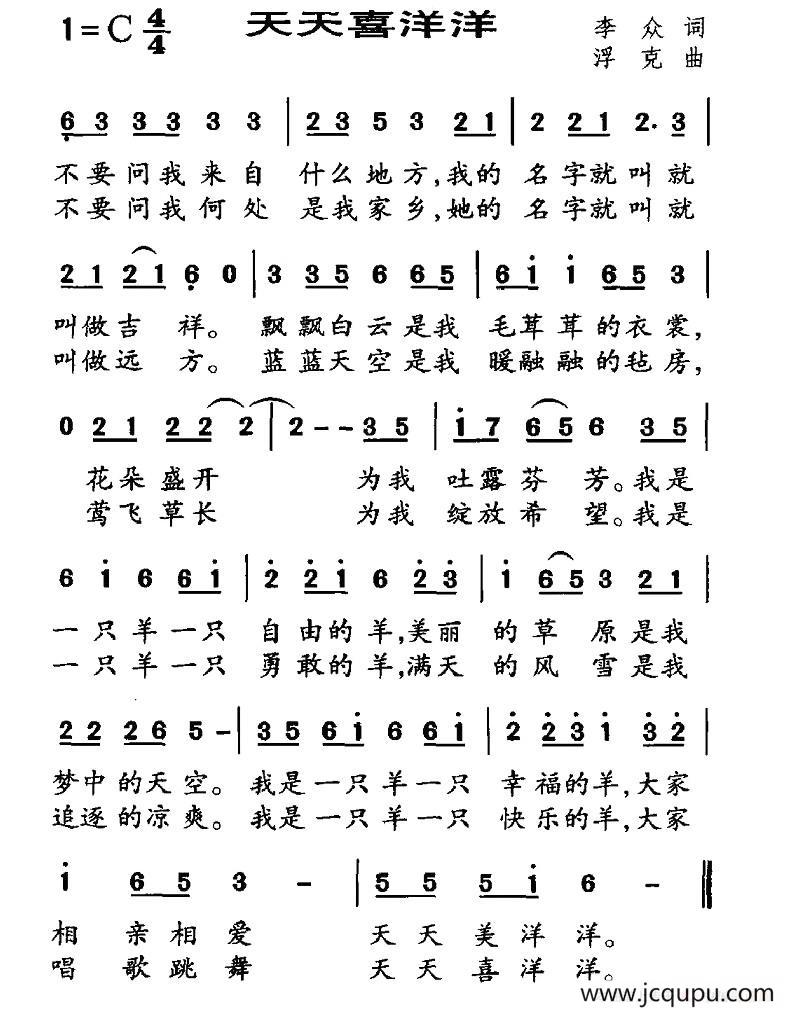 1=C 4/4 天天喜洋洋 李众词
浮克曲
6 3 3 3 3 3 | 2 3 5 3 2 1 | 2 2 1 2. 3 |
不要问我来自 什么地方,我的 名字就叫就
不要问我何处 是我家乡,她的 名字就叫就
2 1 2 1 6 0 | 3 3 5 6 6 5 | 6 i i 6 5 3 |
叫做吉祥。 飘飘白云是我 毛茸茸的衣裳,
叫做远方。 蓝蓝天空是我 暖融融的毡房,
0 2 1 2 2 2 | 2 - - 3 5 | i 7 6 5 6 3 5 |
花朵盛开 为我 吐露芬芳。我是
莺飞草长 为我 绽放希望。我是
6 i 6 6 i | 2 2 i 6 2 3 | i 6 5 3 2 1 |
一只羊一只 自由的羊,美丽 的草原是我
一只羊一只 勇敢的羊,满天 的风雪是我
2 2 2 6 5 - | 3 5 6 i 6 6 i | 2 2 3 i 3 2 |
梦中的天空。我是一只羊一只 幸福的羊,大家
追逐的凉爽。我是一只羊一只 快乐的羊,大家
i 6 5 3 - | 5 5 5 i 6 - ‖
相亲相爱 天天美洋洋。
唱歌跳舞 天天喜洋洋。
www.jcqupu.com